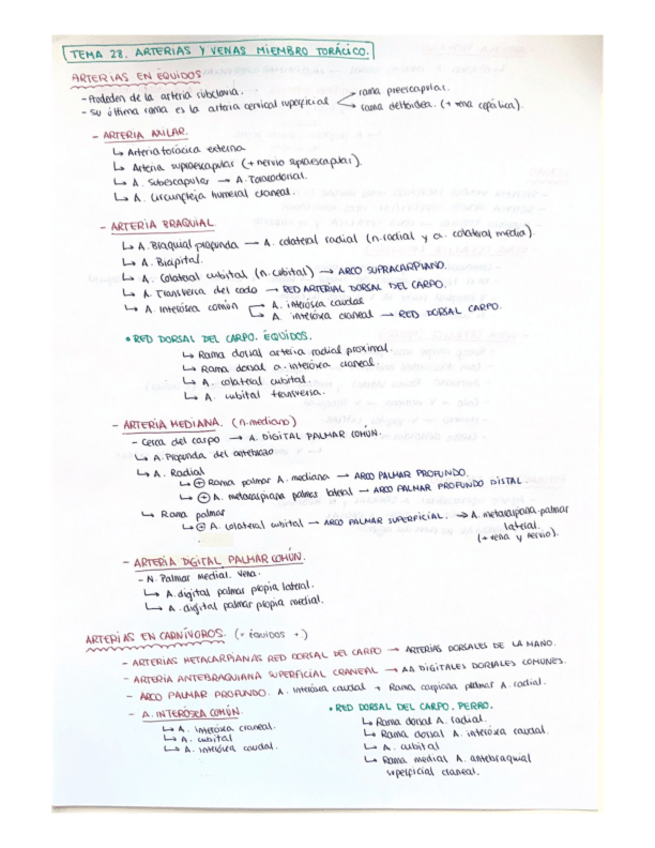 TEMA 28. ARTERIAS Y VENAS MIEMBRO TORÁCICO.
ARTERIAS EN ÉQUIDOS
- Proceden de la arteria subclavia.
- Su última rama es la arteria cervical superficial
rama preescapular.
rama deltoidea. (+ vena cefálica).
- ARTERIA AXILAR.
↳ Arteria torácica externa
↳ Arteria supraescapular (+ nervio supraescapular).
↳ A. Subescapular → A. Toracodorsal.
↳ A. Circunfleja humeral craneal.
- ARTERIA BRAQUIAL.
↳ A. Braquial profunda → A. colateral radial (n. radial y a. colateral media).
↳ A. Bicipital.
↳ A. Colateral cubital (n. cubital) → ARCO SUPRACARPIANO.
↳ A. Transversa del codo → RED ARTERIAL DORSAL DEL CARPO.
↳ A. Interósea común
A. interósea caudal
A. interósea craneal → RED DORSAL CARPO.
• RED DORSAL DEL CARPO. ÉQUIDOS.
↳ Rama dorsal arteria radial proximal.
↳ Rama dorsal a. interósea craneal.
↳ A. colateral cubital.
↳ A. cubital transversa.
- ARTERIA MEDIANA. (n. mediano)
- Cerca del carpo → A. DIGITAL PALMAR COMÚN.
↳ A. Profunda del antebrazo
↳ A. Radial
↳ ⊕ Rama palmar A. mediana → ARCO PALMAR PROFUNDO.
↳ ⊕ A. metacarpiana palmar lateral → ARCO PALMAR PROFUNDO DISTAL.
↳ Rama palmar
↳ ⊕ A. Colateral cubital → ARCO PALMAR SUPERFICIAL. → A. metacarpiana palmar
lateral.
(+ vena y nervio).
- ARTERIA DIGITAL PALMAR COMÚN.
- N. Palmar medial. Vena.
↳ A. digital palmar propia lateral.
↳ A. digital palmar propia medial.
ARTERIAS EN CARNÍVOROS. (= équidos + )
- ARTERIAS METACARPIANAS RED DORSAL DEL CARPO → ARTERIAS DORSALES DE LA MANO.
- ARTERIA ANTEBRAQUIAL SUPERFICIAL CRANEAL → AA DIGITALES DORSALES COMUNES.
- ARCO PALMAR PROFUNDO. A. interósea caudal + Rama carpiana palmar A. radial.
- A. INTERÓSEA COMÚN.
↳ A. interósea craneal.
↳ A. cubital
↳ A. interósea caudal.
• RED DORSAL DEL CARPO. PERRO.
↳ Rama dorsal A. radial.
↳ Rama dorsal A. interósea caudal.
↳ A. cubital
↳ Rama medial A. antebraquial
superficial craneal.